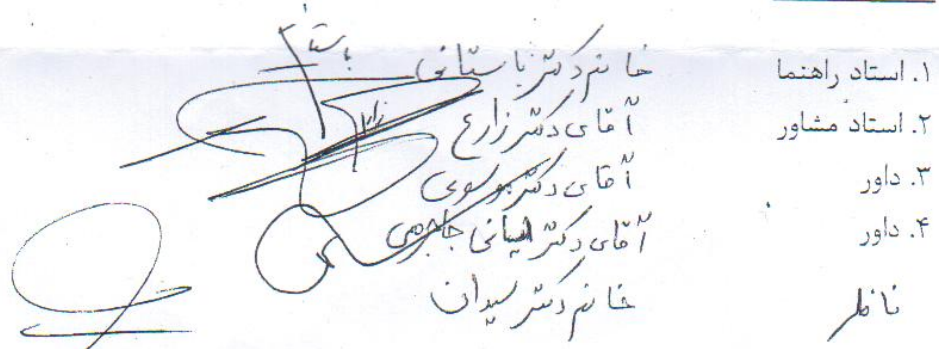 ۱. استاد راهنما خانم دکتر باستانی
۲. استاد مشاور آقای دکتر زارع
۳. داور آقای دکتر موسوی
۴. داور آقای دکتر ایمانی جاجرمی
ناظر خانم دکتر سیدان